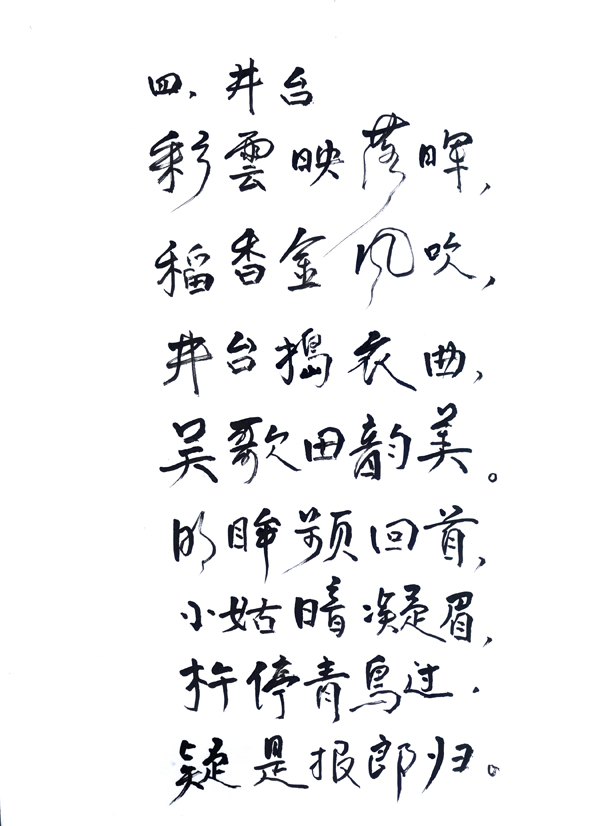 四、井台
彩雲映落暉，
稻香金风吹，
井台搗衣曲，
吴歌田韵美。
明眸频回首，
小姑暗凝眉，
杵停青鳥过．
疑是报郎归。